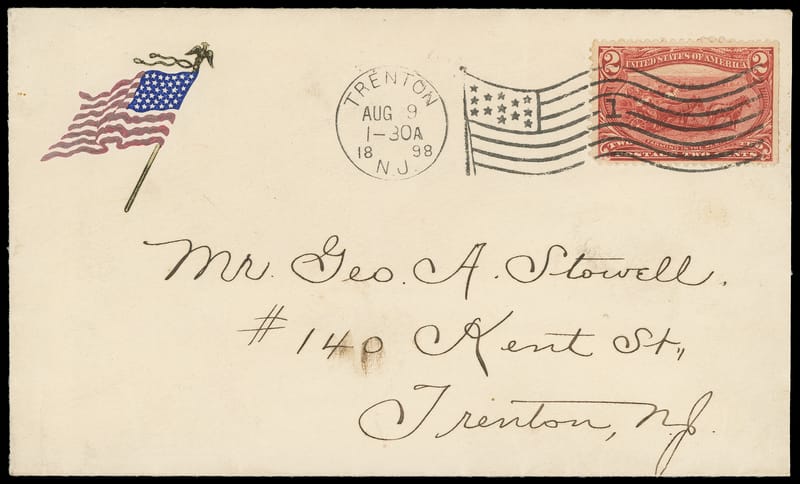 TRENTON
AUG 9
1-30A
18 98
N.J.
2 2
UNITED STATES OF AMERICA
1
TWO CENTS
Mr. Geo. A. Stowell.
#140 Kent St.,
Trenton, N.J.